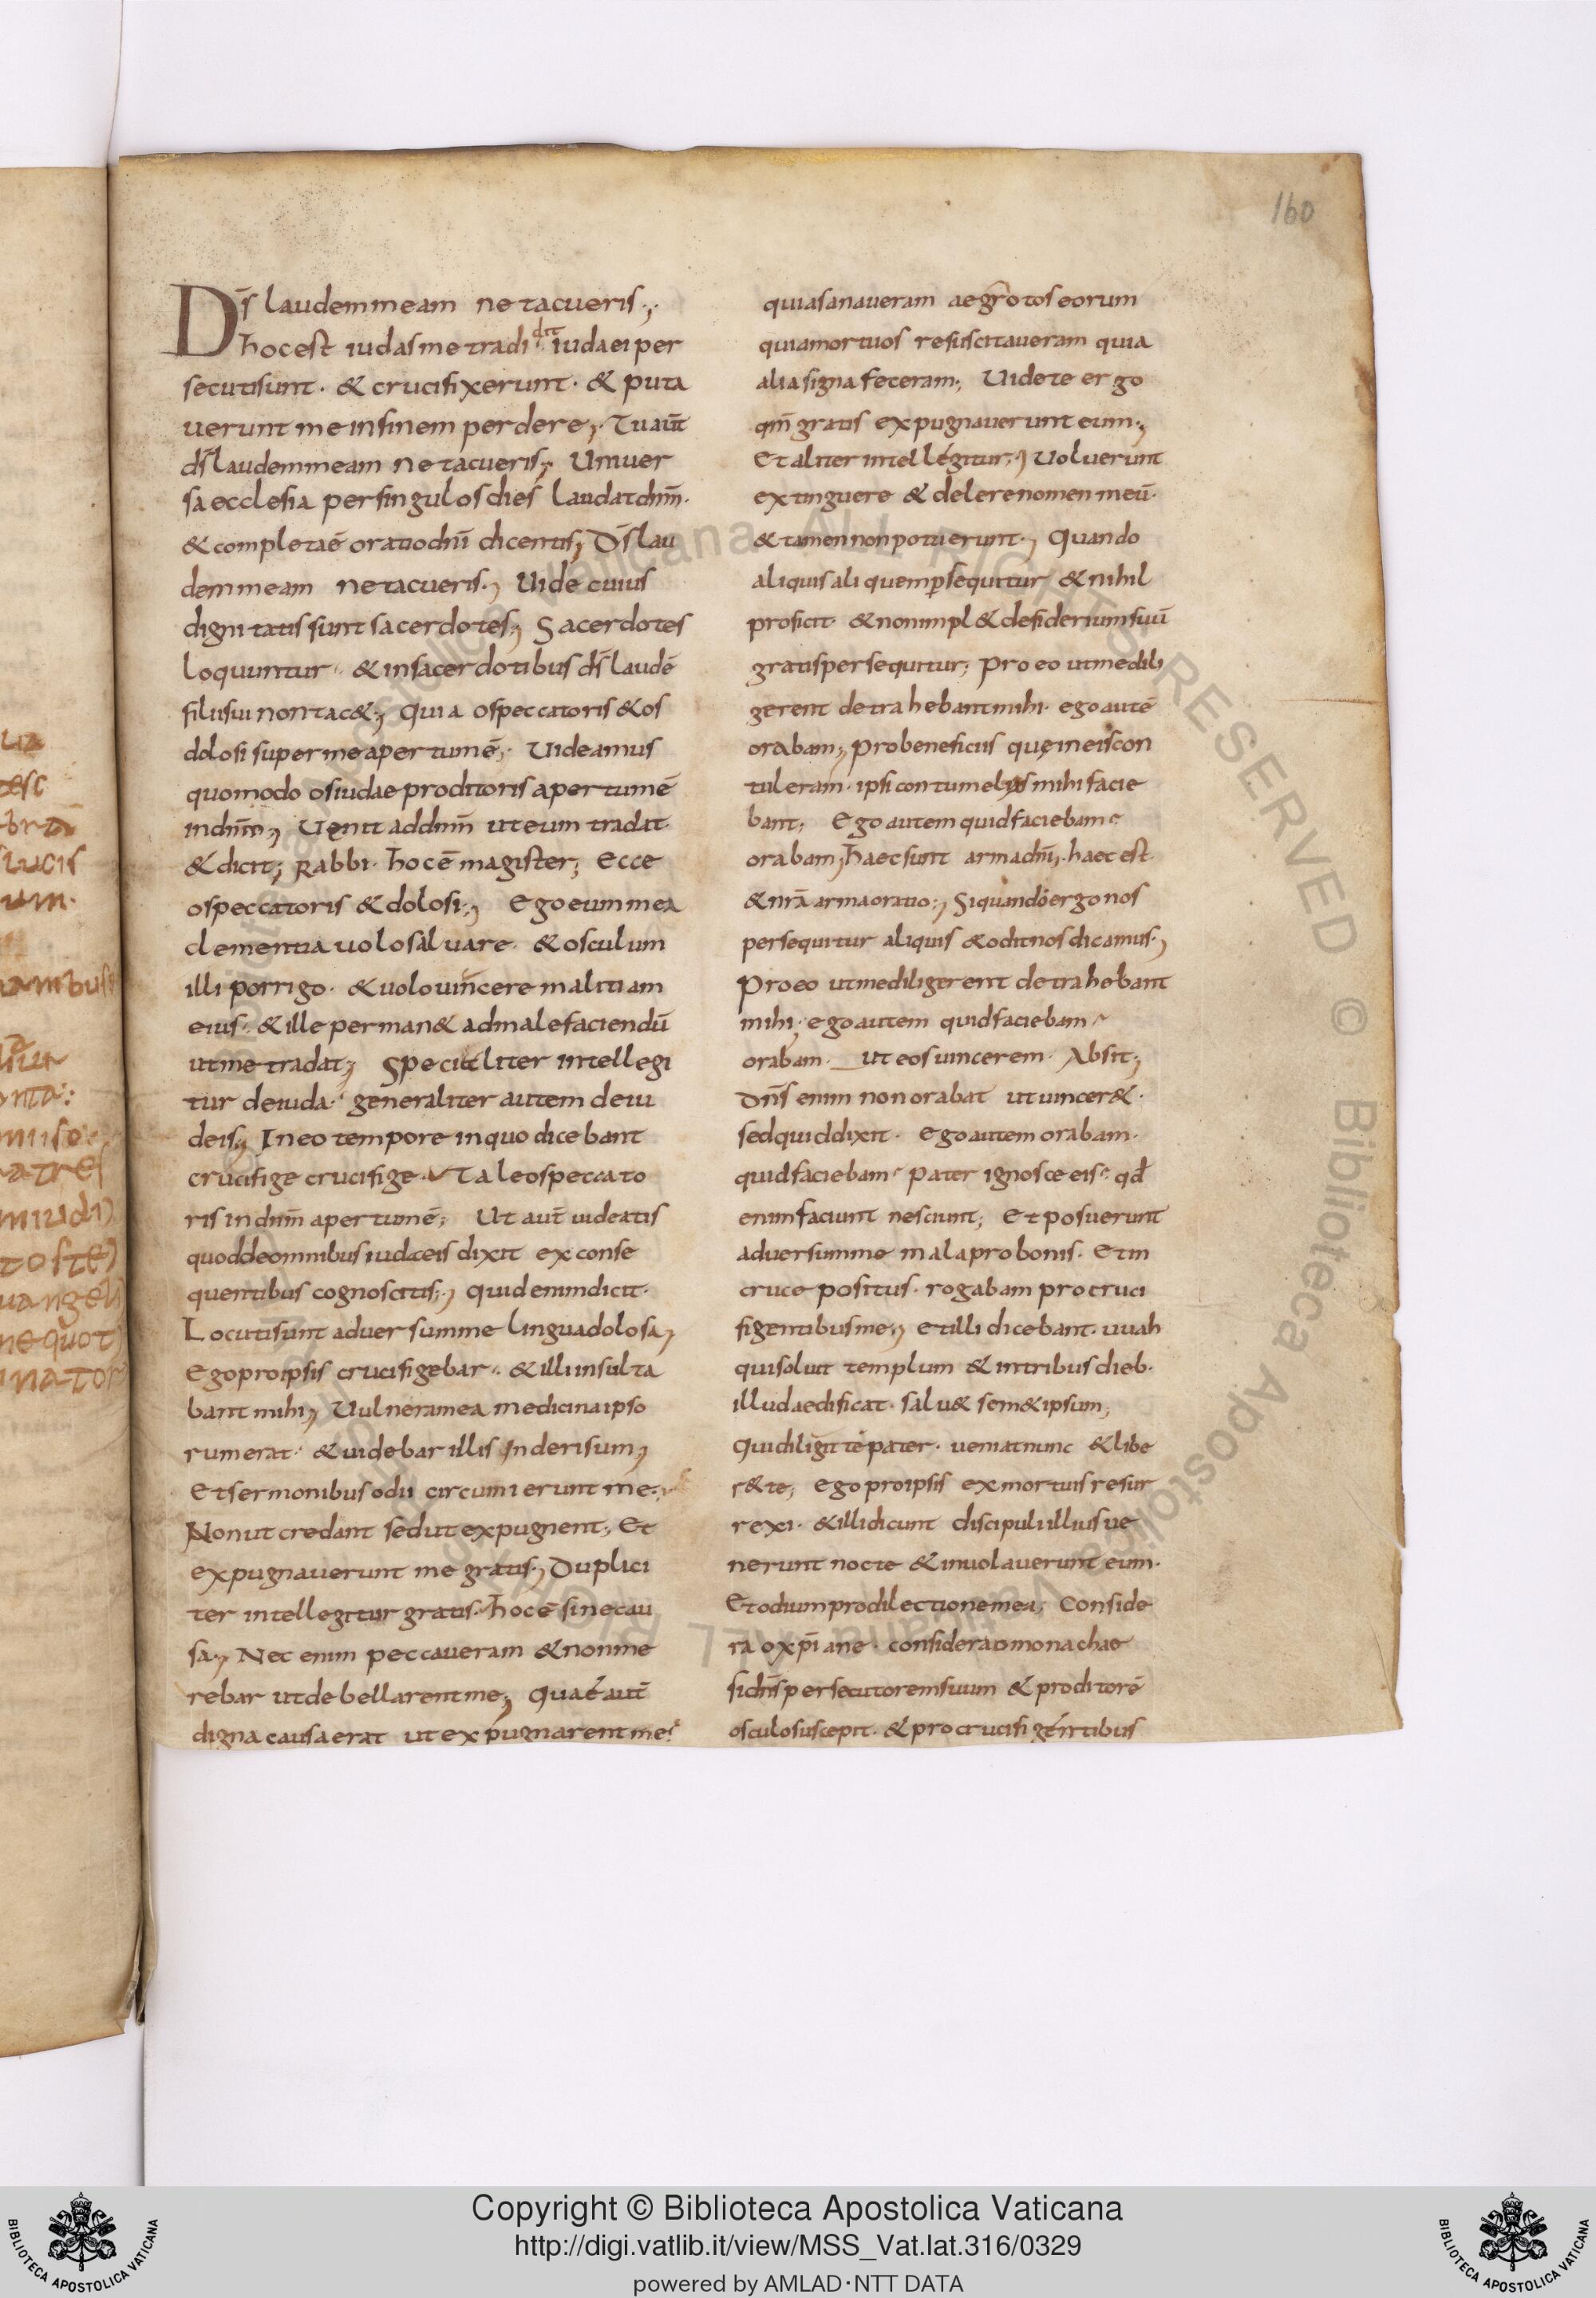 160
Ds̄ laudem meam ne tacueris;
hoc est iudas me tradidit iudaei per
secuti sunt · & crucifixerunt · & puta
uerunt me in finem perdere; Tu aūt
ds̄ laudem meam ne tacueris; Uniuer
sa ecclesia per singulos dies laudat dnm̄ ·
& complet aē oratio dnī dicentis; Ds̄ lau
dem meam ne tacueris; Uide cuius
dignitatis sunt sacerdotes; Sacerdotes
loquuntur · & in sacerdotibus ds̄ laudē
filii sui non tac&; Quia os peccatoris & os
dolosi super me apertum ē; Uideamus
quomodo os iudae proditoris apertum ē
in dnm̄; Uenit ad dnm̄ ut eum tradat ·
& dicit; Rabbi · hoc ē magister; Ecce
os peccatoris & dolosi; Ego eum mea
clementia uolo saluare · & osculum
illi porrigo · & uolo uincere malitiam
eius · & ille perman& ad malefaciendū
ut me tradat; Specialiter intellegi
tur de iuda · generaliter autem de iu
deis; In eo tempore in quo dicebant
crucifige crucifige · Tale os peccato
ris in dnm̄ apertum ē; Ut aut̄ uideatis
quod de omnibus iudaeis dixit ex conse
quentibus cognoscitis; quid enim dicit ·
Locuti sunt aduersum me lingua dolosa;
Ego pro ipsis crucifigebar · & illi insulta
bant mihi; Uulnera mea medicina ipso
rum erat · & uidebar illis in derisum;
Et sermonibus odii circumierunt me;
Non ut credant sed ut expugnent; Et
expugnauerunt me gratis; Duplici
ter intellegitur gratis · hoc ē sine cau
sa; Nec enim peccaueram & non me
rebar ut debellarent me; Quae aut̄
digna causa erat ut expugnarent me?
quia sanaueram aegrotos eorum
quia mortuos resuscitaueram quia
alia signa feceram; Uidete ergo
qm̄ gratis expugnauerunt eum;
Et aliter intellegitur; Uoluerunt
extinguere & delere nomen meū ·
& tamen non potuerunt; Quando
aliquis aliquem psequitur & nihil
proficit · & non impl& desiderium suū
gratis persequitur; Pro eo ut me dili
gerent detrahebant mihi · ego autē
orabam; Pro beneficiis quę in eis con
tuleram · ipsi contumelias mihi facie
bant; Ego autem quid faciebam?
orabam; haec sunt arma dnī; haec est
& nr̄a arma oratio; Si quando ergo nos
persequitur aliquis & odit nos dicamus;
Pro eo ut me diligerent detrahebant
mihi; ego autem quid faciebam?
orabam · ut eos uincerem · Absit;
Dns̄ enim non orabat ut uincer& ·
sed quid dixit · Ego autem orabam ·
quid faciebam? Pater ignosce eis · qđ
enim faciunt nesciunt; Et posuerunt
aduersum me mala pro bonis · Et in
cruce positus · rogabam pro cruci
figentibus me; et illi dicebant · uuah
qui soluit templum & in tribus dieb ·
illud aedificat · salu& sem&ipsum;
Qui diligit te pater · ueniat nunc & libe
r& te; Ego pro ipsis ex mortuis resur
rexi · & illi dicunt discipuli illius ue
nerunt nocte & inuolauerunt eum ·
Et odium pro dilectione mea; Conside
ra o xpīane · considera o monachae
si dns̄ persecutorem suum & proditorē
osculo suscepit · & pro crucifigentibus
ambus
ua
lucis
um.
Copyright © Biblioteca Apostolica Vaticana
http://digi.vatlib.it/view/MSS_Vat.lat.316/0329
powered by AMLAD·NTT DATA
BIBLIOTECA APOSTOLICA VATICANA
BIBLIOTECA APOSTOLICA VATICANA